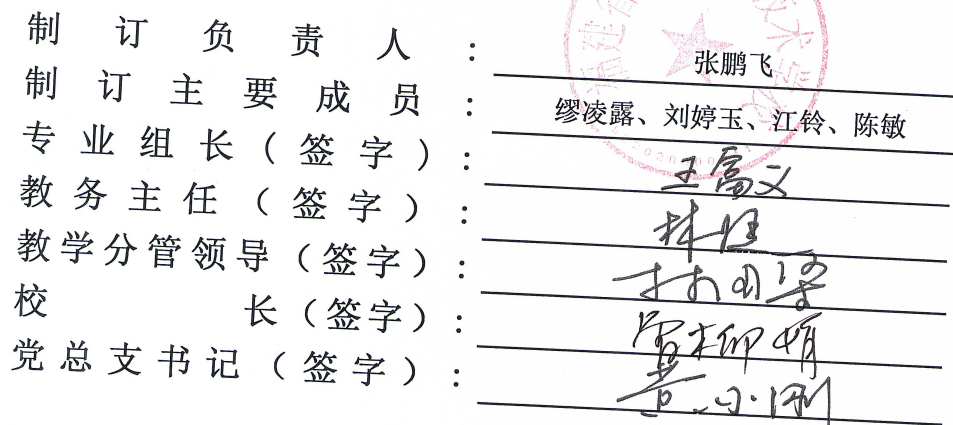 制订负责人：张鹏飞
制订主要成员：缪凌露、刘婷玉、江铃、陈敏
专业组长（签字）：王富义
教务主任（签字）：林
教学分管领导（签字）：林国
校长（签字）：柳
党总支书记（签字）：小刚